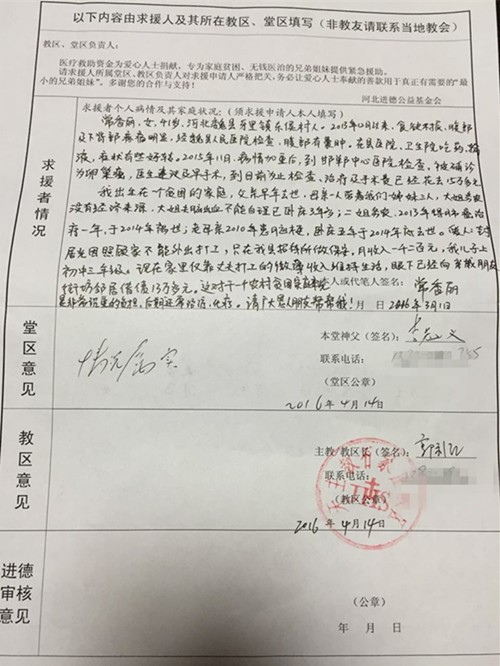 以下内容由求援人及其所在教区、堂区填写（非教友请联系当地教会）
教区、堂区负责人：
医疗救助资金为爱心人士捐献，专为家庭贫困、无钱医治的兄弟姐妹提供紧急援助。
请求援人所属堂区、教区负责人对求援申请人严格把关，务必让爱心人士奉献的善款用于真正有需要的“最
小的兄弟姐妹”。多谢您的合作与支持！
河北进德公益基金会
求援者情况
求援者个人病情及其家庭状况：（须求援申请人本人填写）
常香丽，女，41岁，河北省魏县 村人。2013年 ，食欲不振，腹部
及下背部疼痛明显，经魏县人民医院检查，腹部有囊肿，在县医院、卫生院吃药、输
液，症状有些好转。2015年11月，病情加重后，到邯郸中心医院检查，被确诊
为卵巢癌，医生建议及早手术，到目前为止检查、治疗及手术费已经花去15万多元
我出生在个贫困的家庭，父亲早年去世，母亲一人带着我们姊妹3人，大姐务农
没有经济来源，大姐夫脑出血不能自理已卧床3年多；二姐务农，2013年
疗一年，于2014年病世；老母亲2010年 ，卧床五年于2014年底去世。
因照顾家不能外出打工，只在我县招待所做保安，月收入一千二百元，我儿子上
初中三年级。现在家里仅靠丈夫打工的微薄收入维持生活，眼下已经向亲戚朋友
街坊邻居借债13万多元。这对于一个农村贫困家庭来说
是非常沉重的负担，后期还需治疗、化疗。请广大恩人朋友帮帮我！
或代笔人签名：常香丽
2016年3月1日
堂区意见
情况属实
本堂神父（签名）：
联系电话：
（堂区公章）
2016年4月14日
教区意见
主教/教区长（签名）：
联系电话：
（教区公章）
2016年4月14日
进德审核意见
（公章）
年 月 日